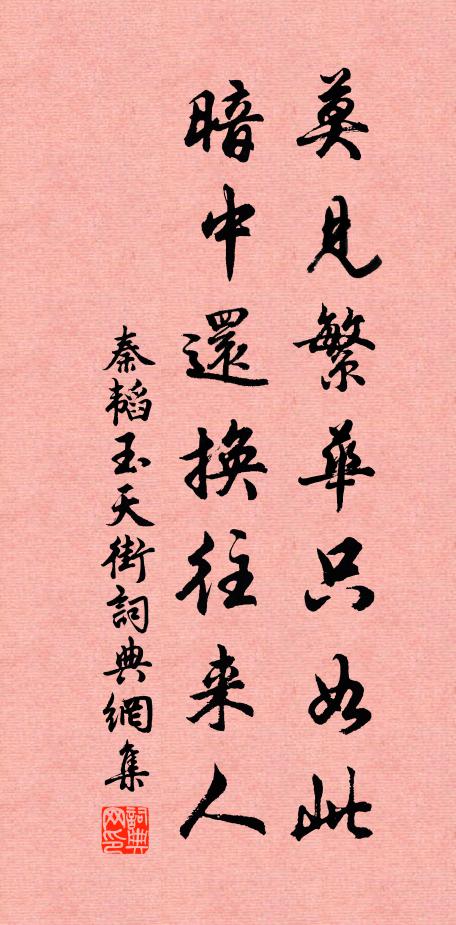 莫見繁華只如此
暗中還換往来人
秦韬玉天街詞典網集
詞典网印